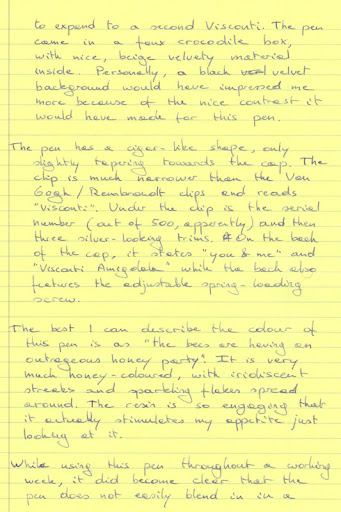 to expend to a second Visconti. The pen
came in a faux crocodile box,
with nice, beige velvety material
inside. Personally, a black velvet
background would have impressed me
more because of the nice contrast it
would have made for this pen.
The pen has a cigar-like shape, only
slightly tapering towards the cap. The
clip is much narrower than the Van
Gogh / Rembrandt clips and reads
"Visconti". Under the clip is the serial
number (out of 500, apparently) and then
three silver-looking trims. On the back
of the cap, it states "you & me" and
"Visconti Amigdala" while the back also
features the adjustable spring-loading
screw.
The best I can describe the colour of
this pen is as "the bees are having an
outrageous honey party". It is very
much honey-coloured, with iridiscent
streaks and sparkling flakes spread
around. The resin is so engaging that
it actually stimulates my appetite just
looking at it.
While using this pen throughout a working
week, it did become clear that the
pen does not easily blend in in a